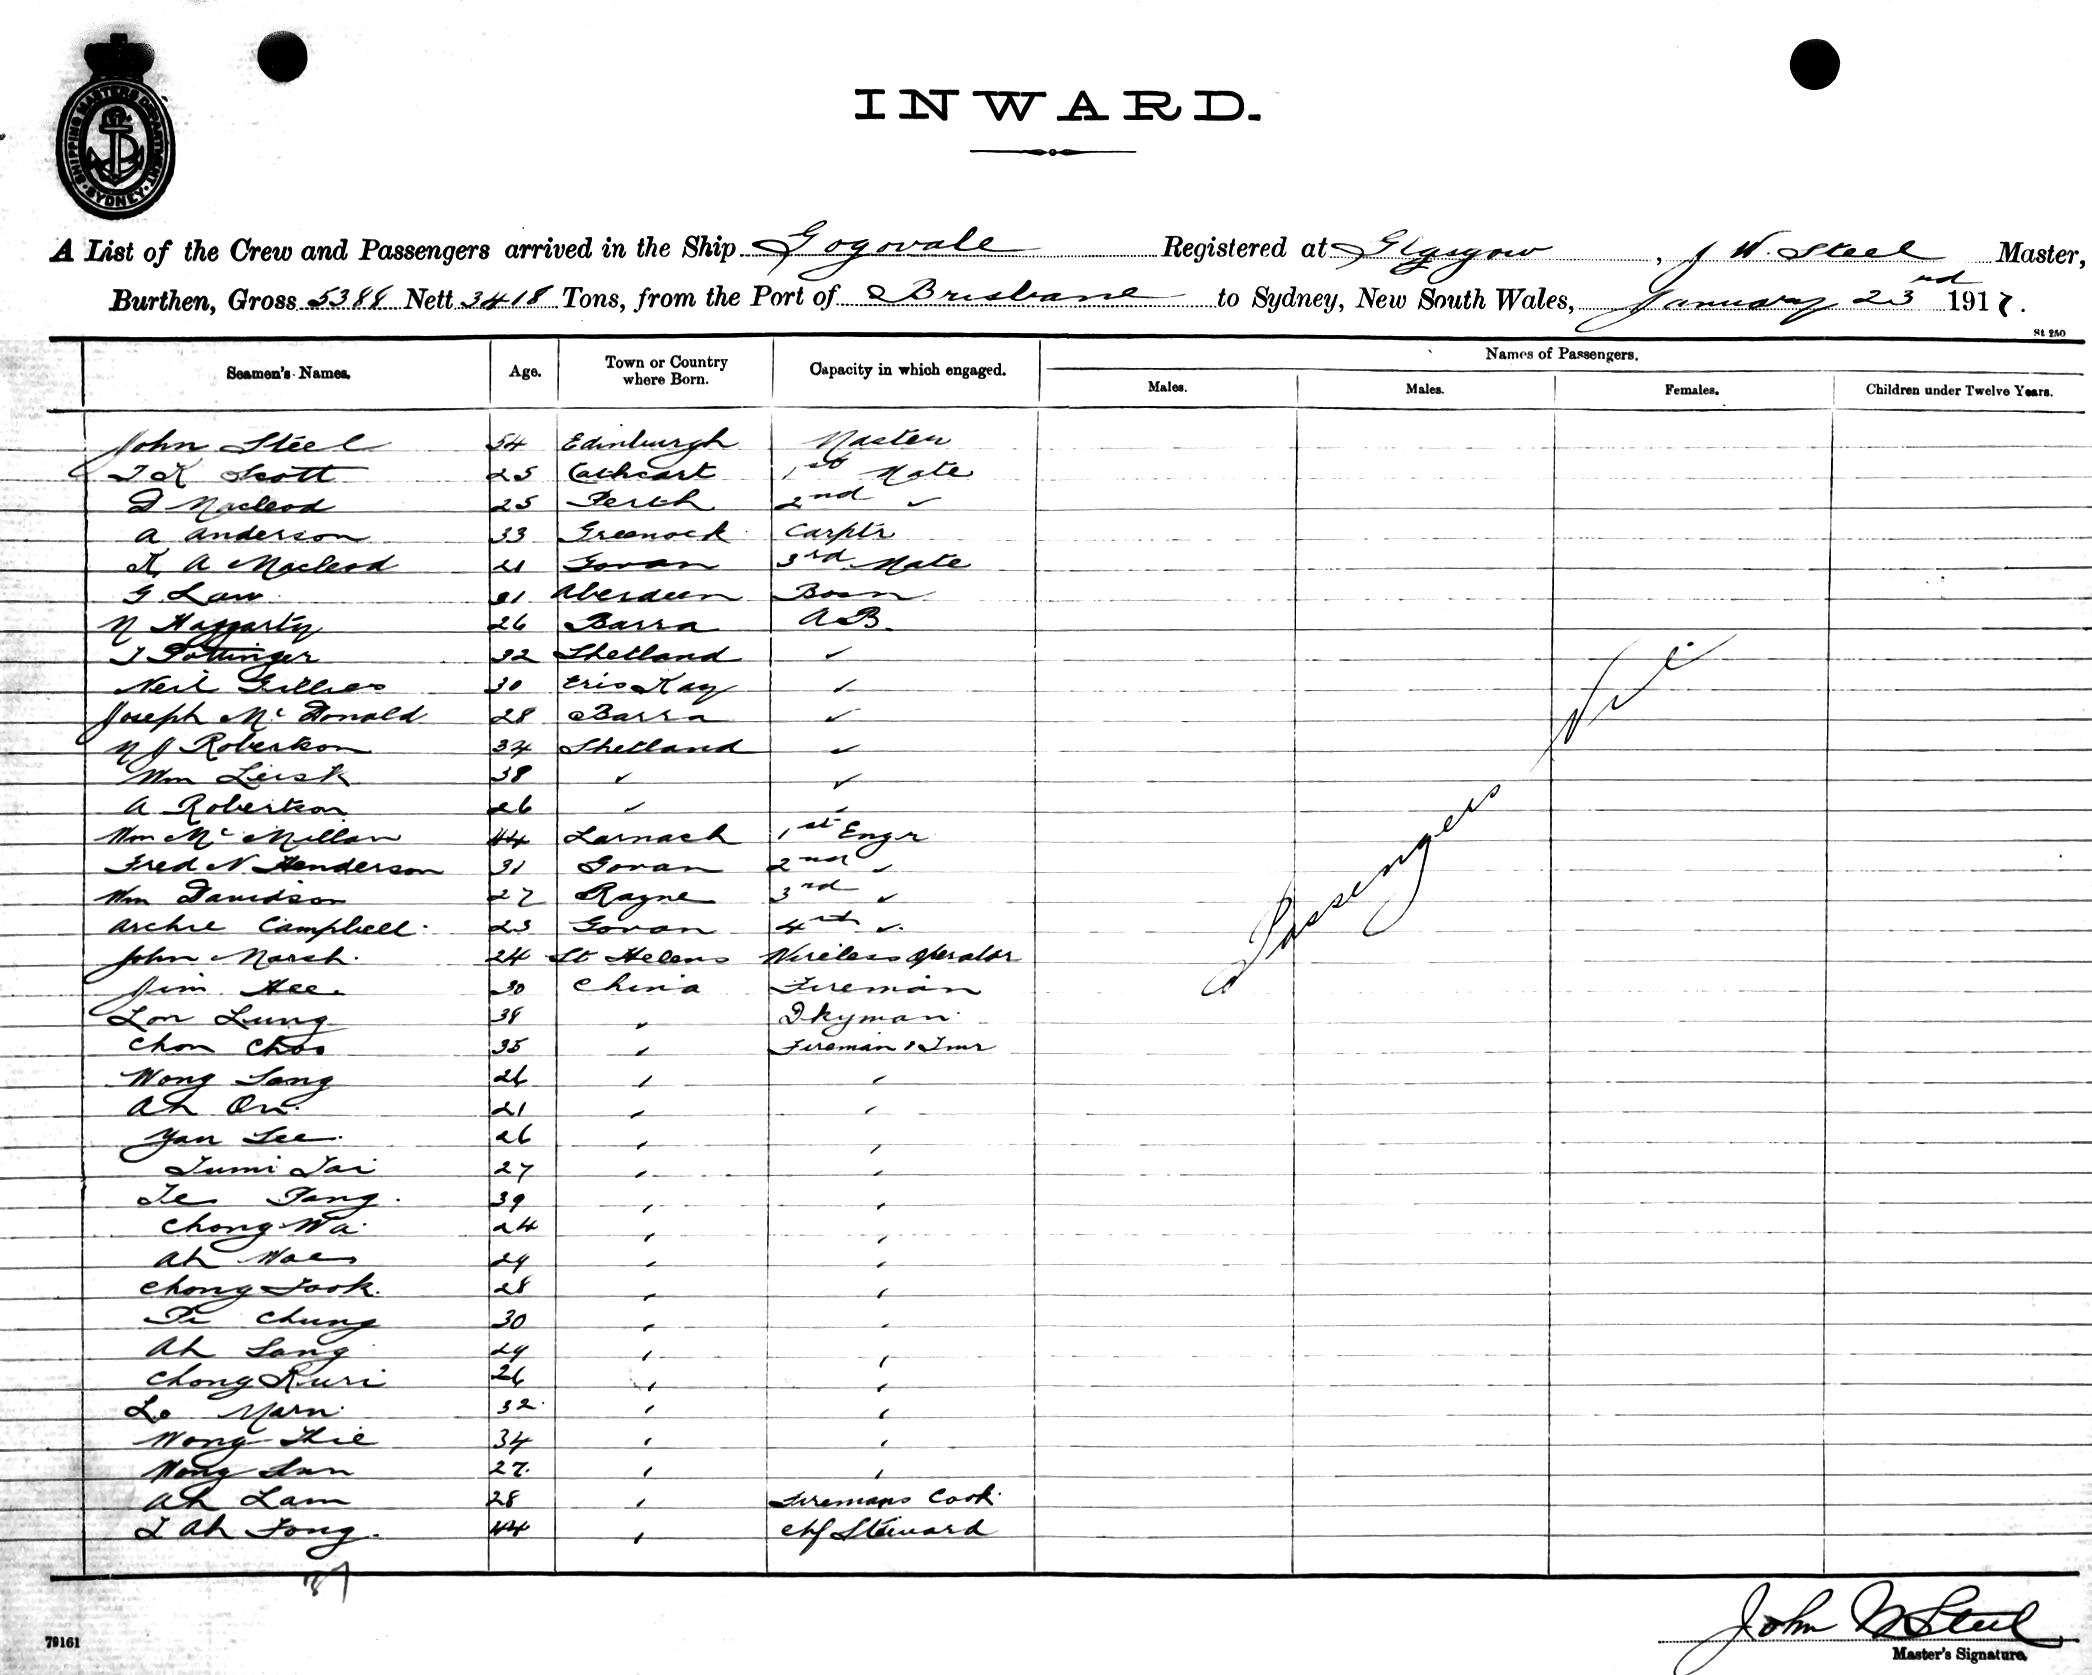 SHIPPING MASTERS DEPARTMENT · SYDNEY ·
INWARD.
A List of the Crew and Passengers arrived in the Ship Gogovale Registered at Glasgow, J W. Steel Master,
Burthen, Gross 5388 Nett 3418 Tons, from the Port of Brisbane to Sydney, New South Wales, January 23rd 1917.
St 250
Seamen's Names. Age. Town or Country where Born. Capacity in which engaged. Names of Passengers.
Males. Males. Females. Children under Twelve Years.
John Steel 54 Edinburgh Master
T K Scott 25 Cathcart 1st Mate
D Macleod 25 Perth 2nd ✓
A Anderson 33 Greenock Carptr
K A Macleod 21 Govan 3rd Mate
G Law 31 Aberdeen Bosn
N Haggarty 26 Barra A B.
J Pottinger 32 Shetland ✓
Neil Gillies 30 Eris Kay ✓
Joseph Mc Donald 28 Barra ✓
N J Robertson 34 Shetland ✓
Wm Leisk 38 ✓ ✓
A Robertson 26 ✓ ✓
Wm Mc Millan 44 Larnach 1st Engr
Fred N Henderson 31 Govan 2nd ✓
Wm Davidson 27 Rayne 3rd ✓
Archie Campbell 23 Govan 4th ✓
John Marsh 24 St Helens Wireless Operator
Passengers Nil
Jim Hee 30 China Fireman
Lon Lung 38 " Dkyman
Chon Choo 35 " Fireman & Tmr
Wong Sang 26 " "
Ah On 21 " "
Yan See 26 " "
Tumi Tai 27 " "
Te Pang 39 " "
Chong Wa 24 " "
Ah 29 " "
Chong Fook 28 " "
Pi Chung 30 "
Ah Sang 29 " "
Chong Kuri 26 " "
Lo Marn 32 " "
Wong Thie 34 " "
Wong Sun 27 " "
Ah Lam 28 " Firemans Cook
I Ah Fong 44 " Chf Steward
37
John W Steel
Master's Signature.
79161